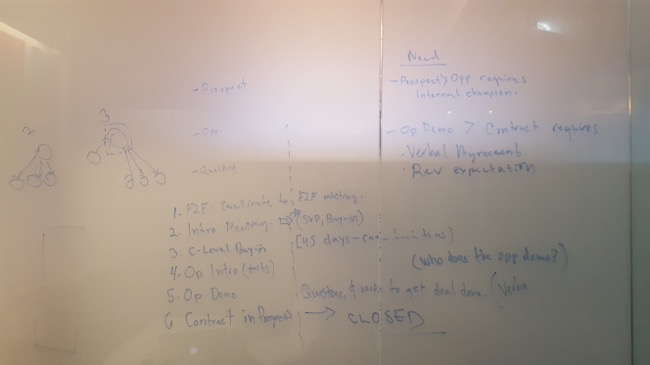 Need
- Prospect > Opp requires
Internal champion.
- Prospect
3
2
- Opp
- Op Demo > Contract requires
· Verbal Agreement
· Rev expectation
- Qualified
1. F2F to F2F meeting.
2. Intro Meeting (SVP, Buy-in)
3. C-Level Buyin [45 days -
(who does the opp demo?)
4. Op Intro (tests)
5. Op Demo Questions, & to get deal done. (Verba
6 Contract in Progress → CLOSED